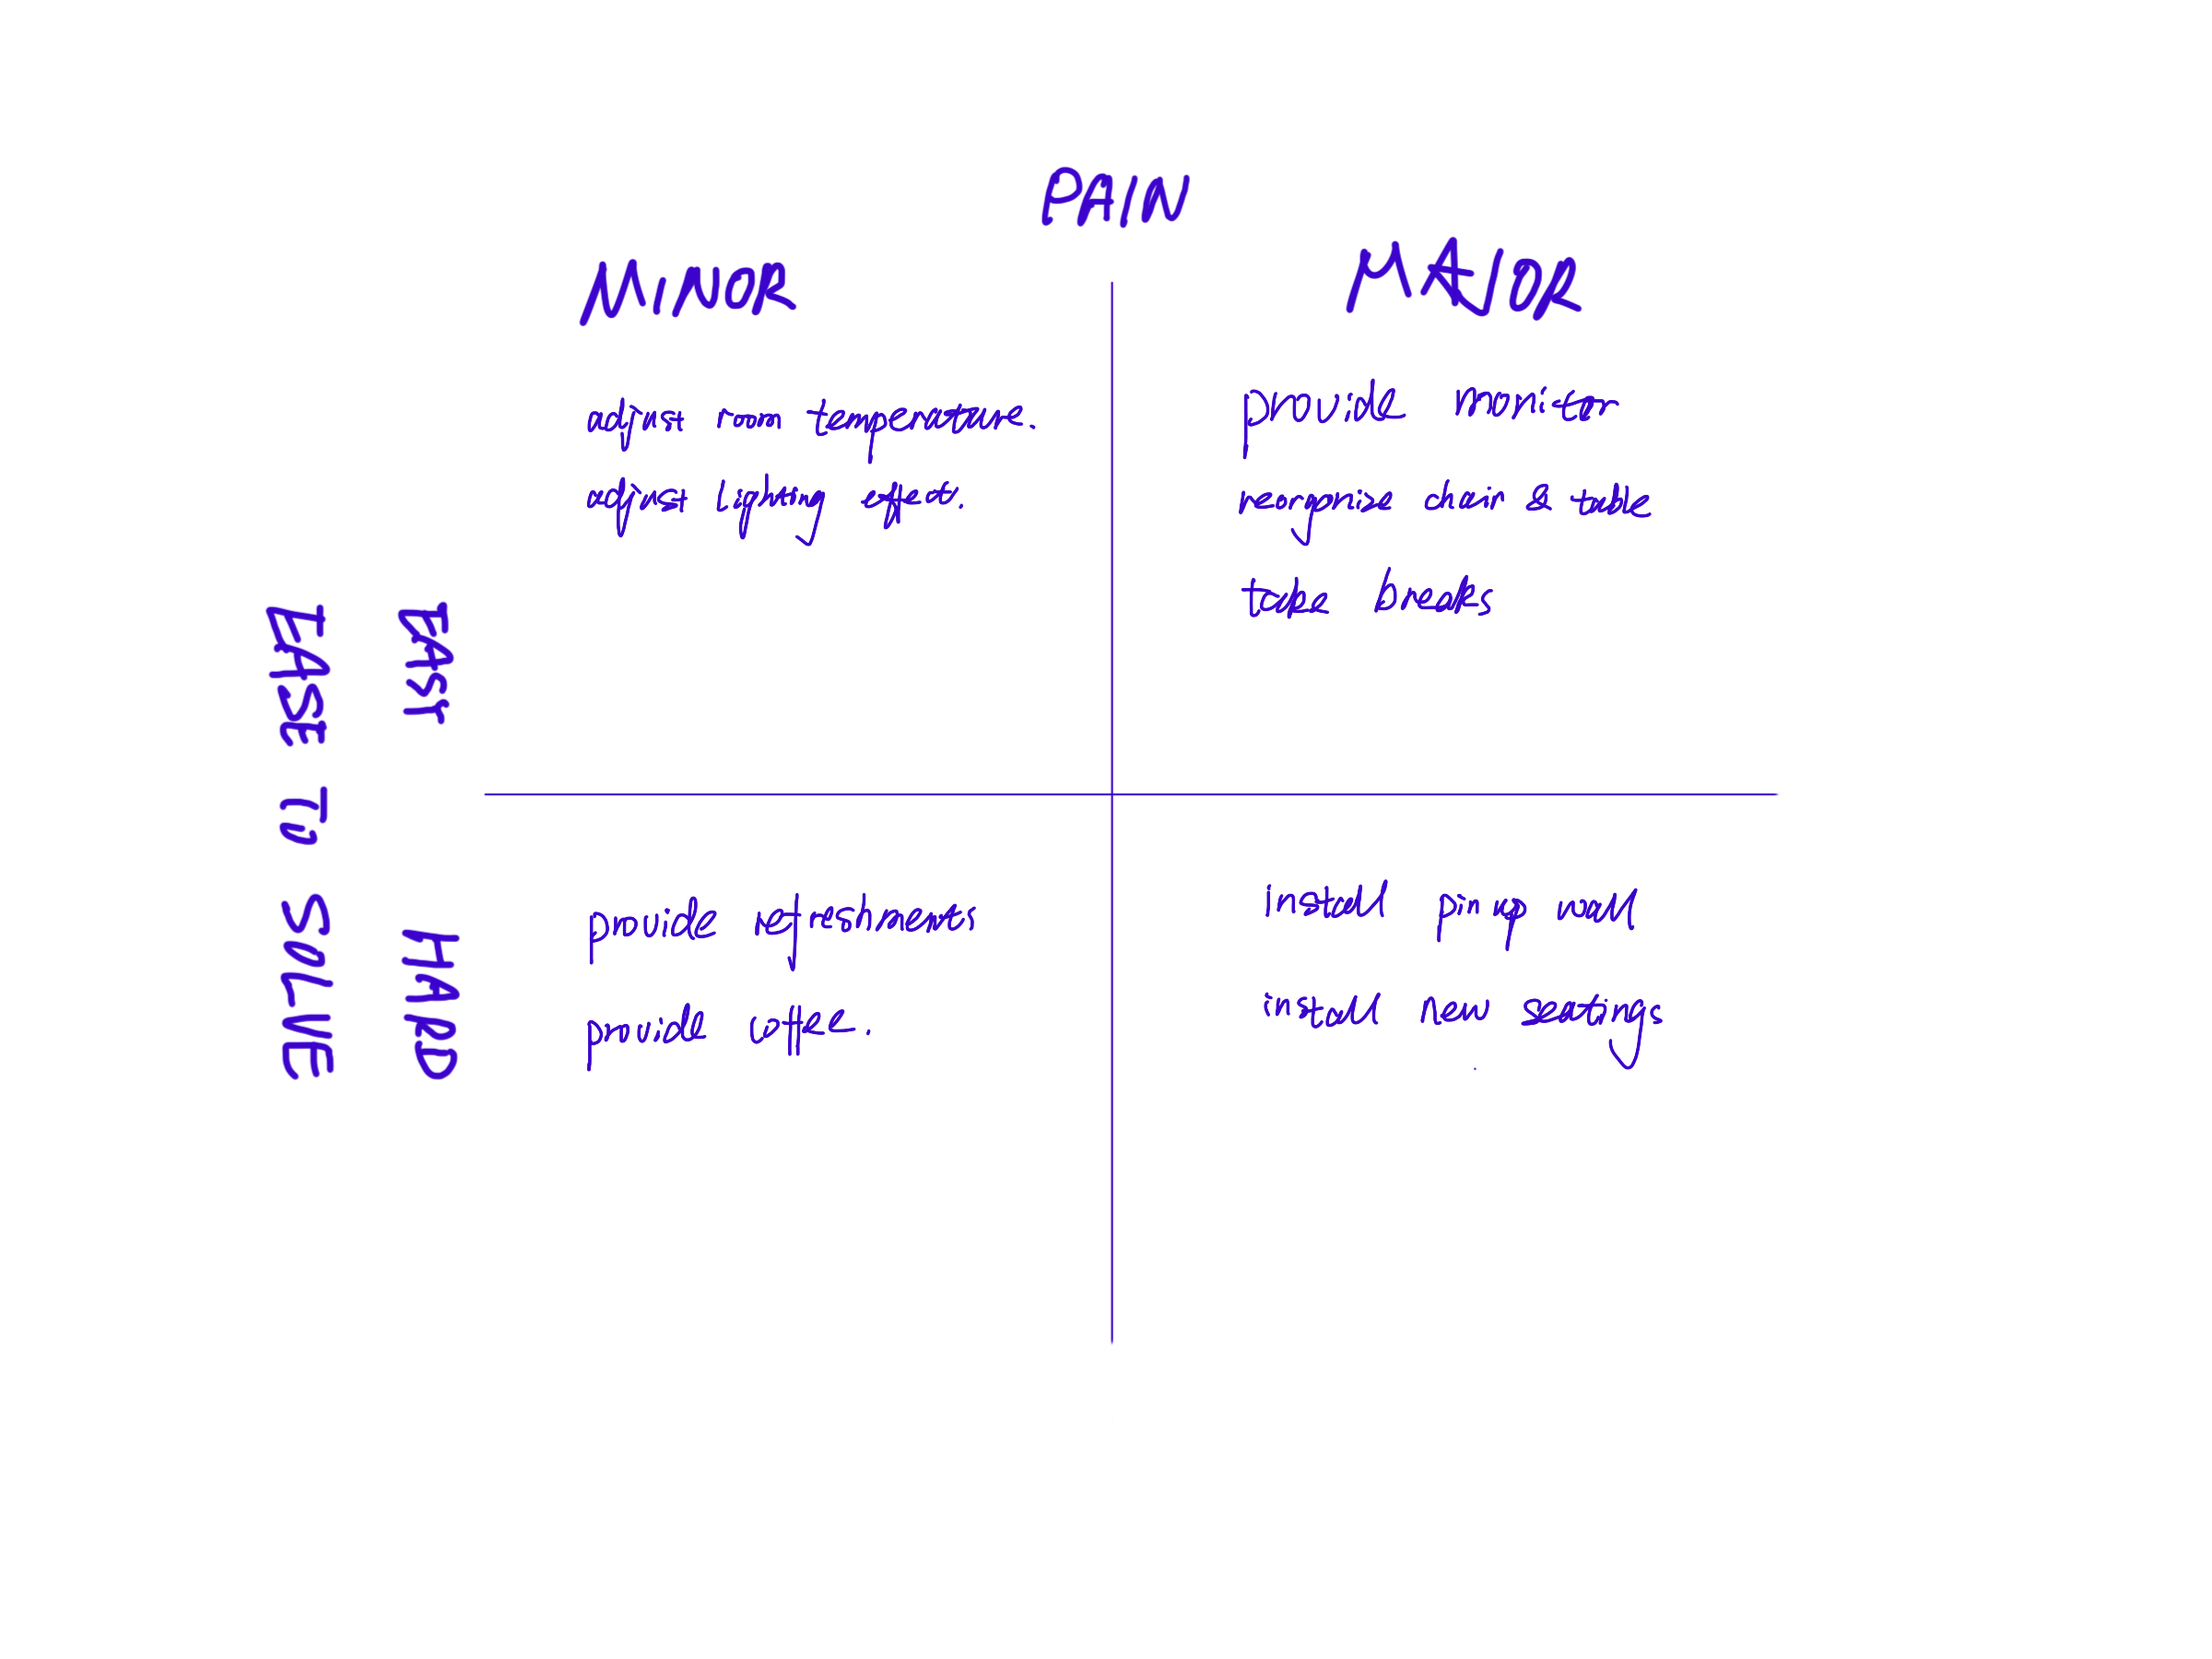 PAIN
MINOR
MAJOR
adjust room temperature.
adjust lighting effect.
provide monitor
reorganize chair & table
take breaks
EASE TO SOLVE
EASY
HARD
provide refreshments
provide coffee.
install pin up wall
install new seatings